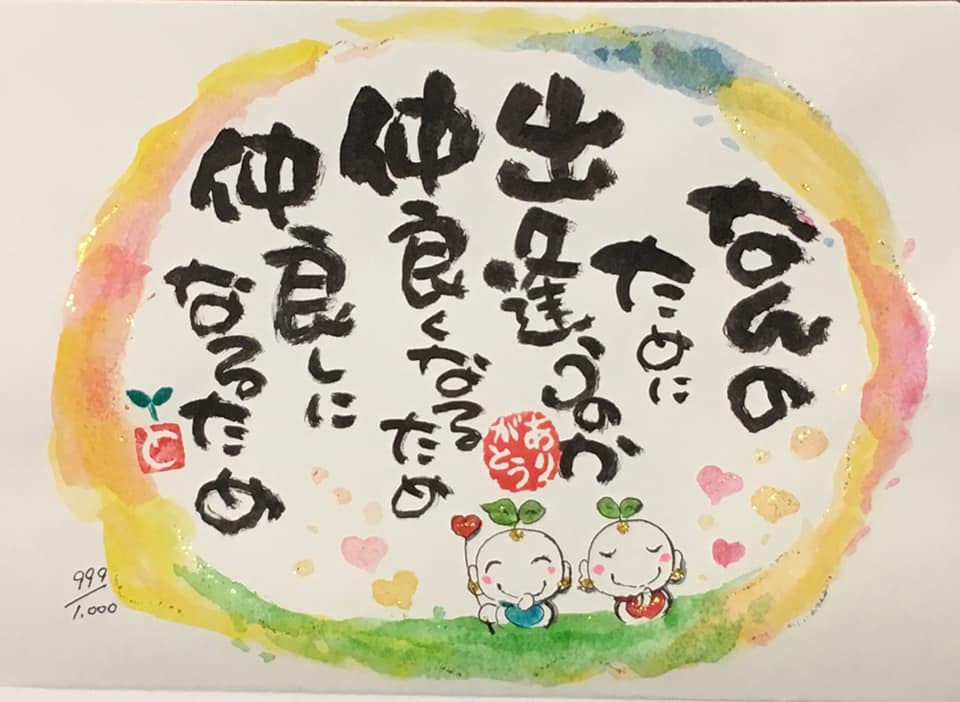 なんの
ために
出逢うのか
仲良くなるため
仲良しに
なるため
ありがとう
と
999/1,000